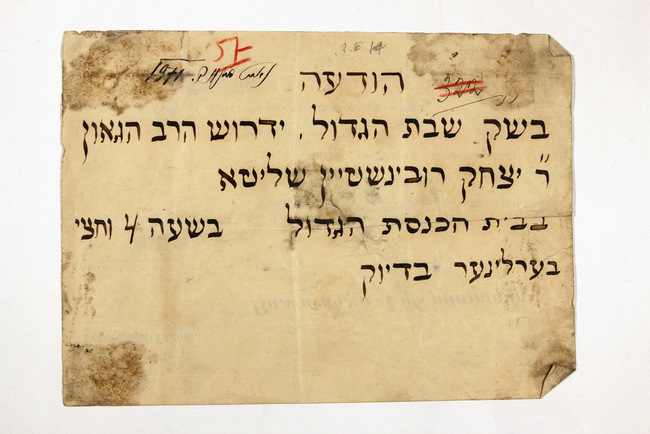 57
322
הודעה
בשק שבת הגדול, ידרוש הרב הגאון
ר' יצחק רובינשטיין שליטא
בבית הכנסת הגדול בשעה 4 וחצי
בערלינער בדיוק